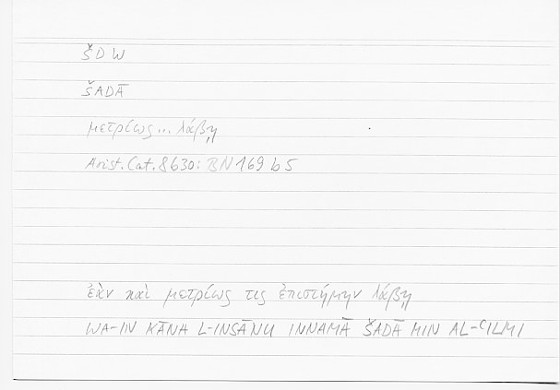 ŠDW
ŠADĀ
μετρίως... λάβῃ
Arist. Cat. 8b30: BN 169 b5
ἐὰν καὶ μετρίως τις ἐπιστήμην λάβῃ
WA-IN KĀNA L-INSĀNU INNAMĀ ŠADĀ MIN AL-ʿILMI